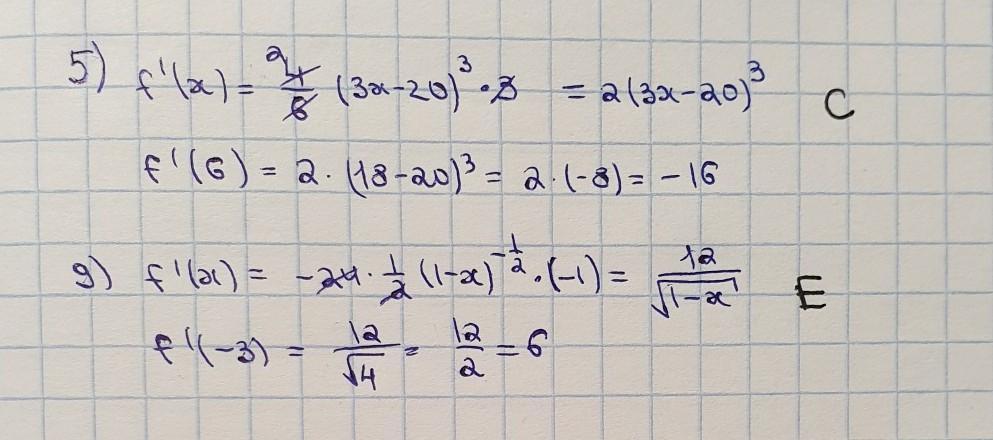 5) f'(x) = 4/6 (3x-20)³ · 3 = 2(3x-20)³ C
f'(6) = 2 · (18-20)³ = 2 · (-8) = -16
9) f'(x) = -24 · 1/2 (1-x)^(-1/2) · (-1) = 12/√(1-x) E
f'(-3) = 12/√4 = 12/2 = 6